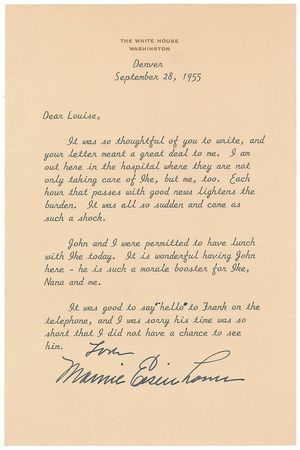 THE WHITE HOUSE
WASHINGTON
Denver
September 28, 1955
Dear Louise,
It was so thoughtful of you to write, and
your letter meant a great deal to me. I am
out here in the hospital where they are not
only taking care of Ike, but me, too. Each
hour that passes with good news lightens the
burden. It was all so sudden and came as
such a shock.
John and I were permitted to have lunch
with Ike today. It is wonderful having John
here - he is such a morale booster for Ike,
Nana and me.
It was good to say "hello" to Frank on the
telephone, and I was sorry his time was so
short that I did not have a chance to see
him.
Love
Mamie Eisenhower